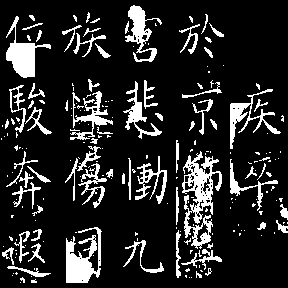 疾卒
於京師
悲慟九
族悼傷同
位駿奔遐